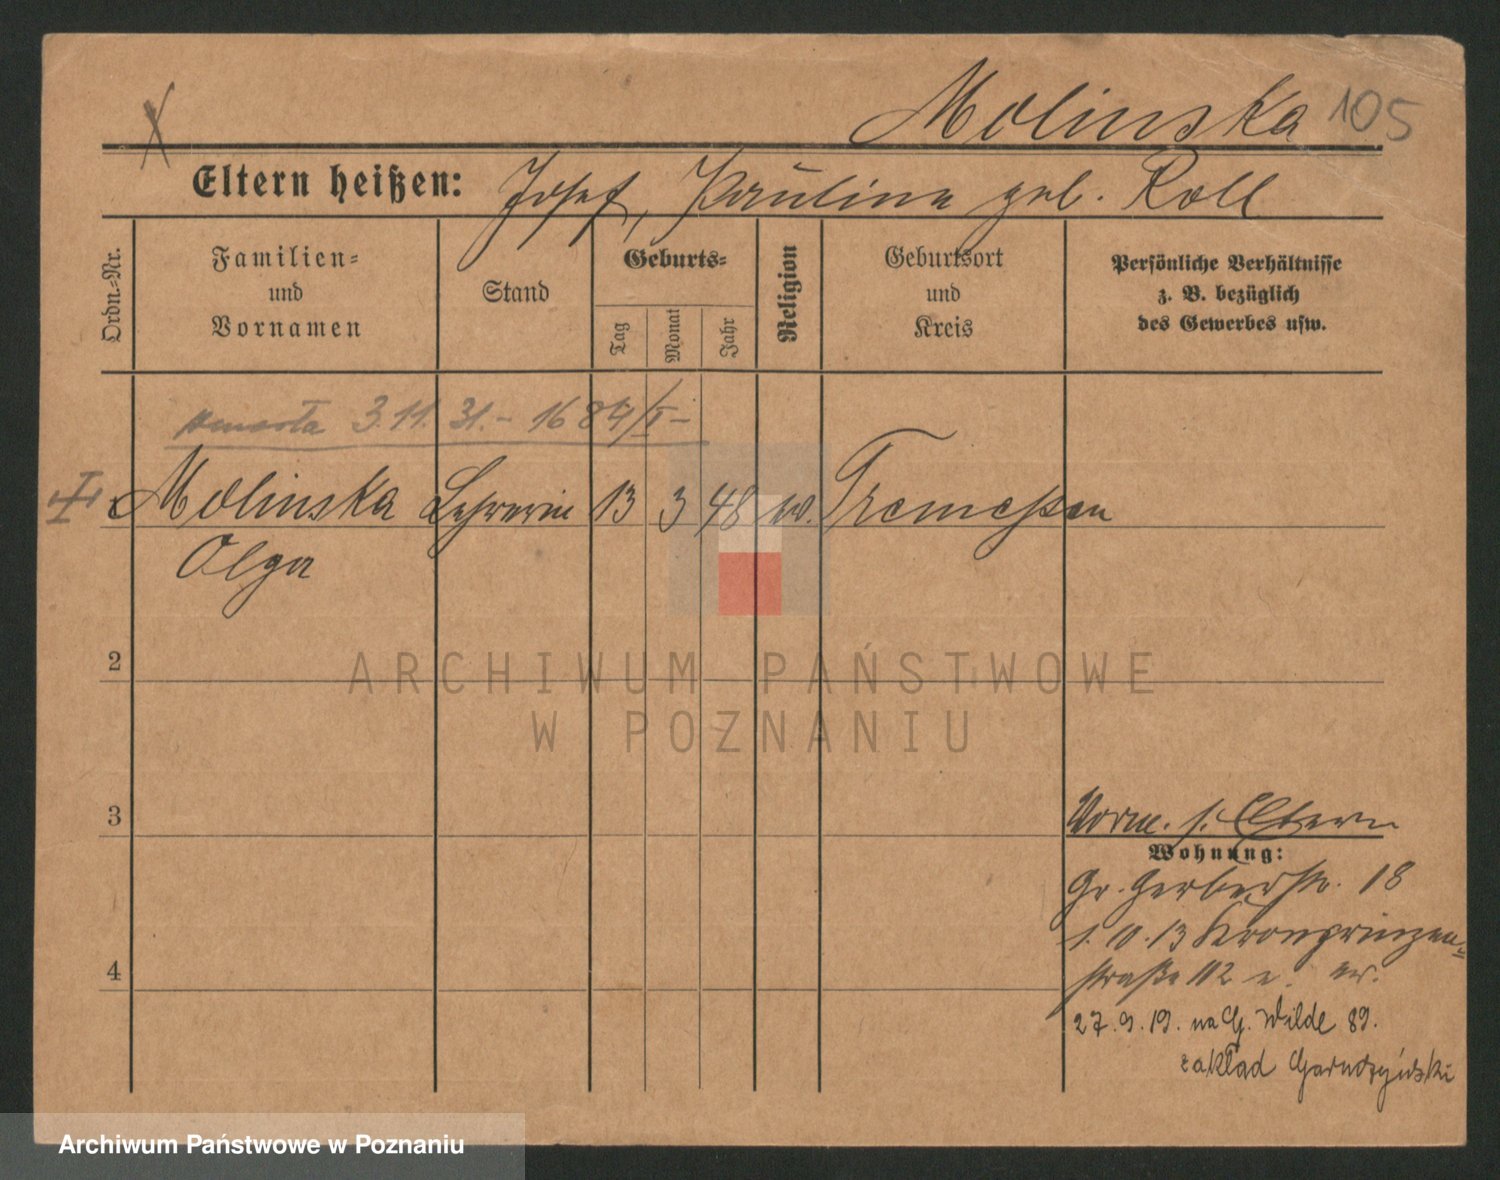 Molinska 105
Eltern heißen: Josef, Paulina geb. Roll
Ordn.=Nr.
Familien=
und
Vornamen
Stand
Geburts=
Tag
Monat
Jahr
Religion
Geburtsort
und
Kreis
Persönliche Verhältnisse
z. B. bezüglich
des Gewerbes usw.
zmarła 3.11.31.– 1684/I–
Molinska Lehrerin 13 3 48 Tremessen
Olga
2
3
4
Vorm. s. Eltern
Wohnung:
Gr. Gerberstr. 18
1.10.13 Kronprinzen=
straße 112
27.9.19. na G. Wilde 89.
zakład Garnczyński
ARCHIWUM PAŃSTWOWE
W POZNANIU
Archiwum Państwowe w Poznaniu